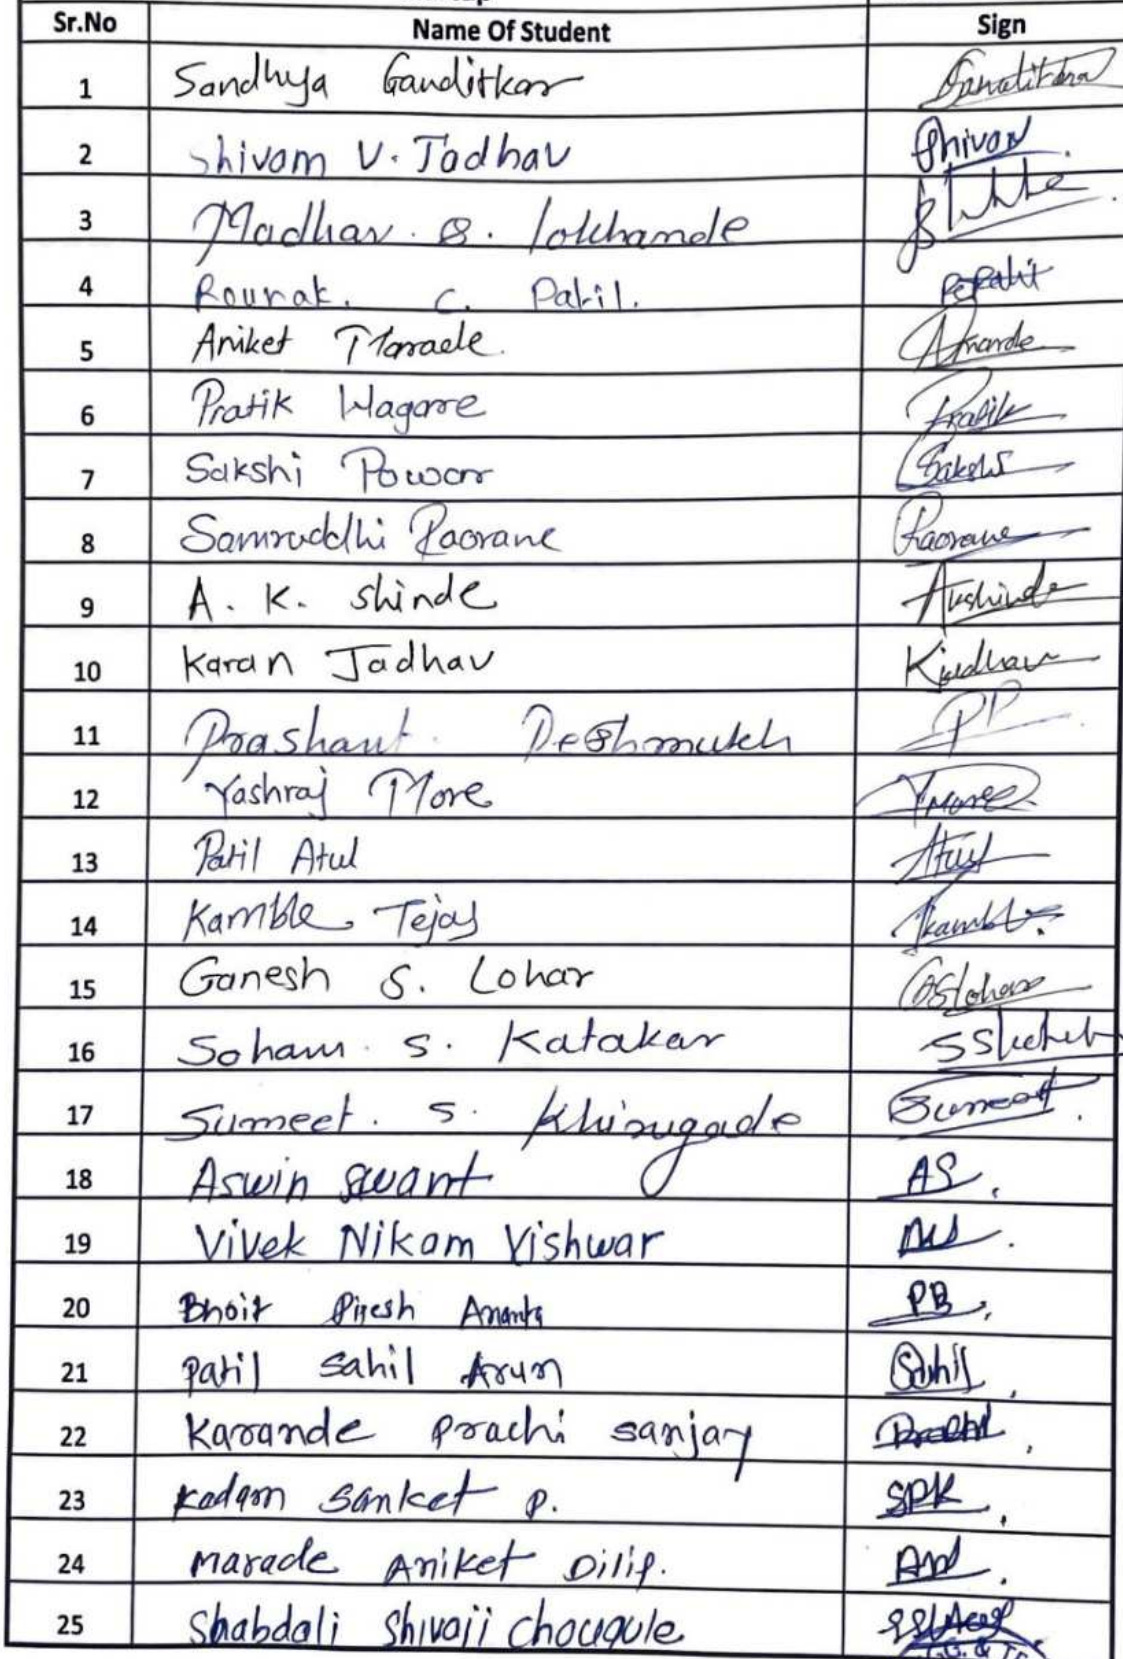 Sr.No Name Of Student Sign
1 Sandhya Ganditkar
2 Shivam V. Jadhav Shivam
3 Madhav. S. Lokhande
4 Rounak. C. Patil.
5 Aniket Marade. AMarade
6 Pratik Wagare Pratik
7 Sakshi Powar Sakshi
8 Samruddhi Raorane Raorane
9 A. K. Shinde AkShinde
10 Karan Jadhav KJadhav
11 Prashant. Deshmukh PD
12 Yashraj More YMore
13 Patil Atul Atul
14 Kamble Tejas TKamble
15 Ganesh S. Lohar GSLohar
16 Soham. S. Katakar
17 Sumeet. S. Khirugade Sumeet.
18 Aswin Swant AS.
19 Vivek Nikam Vishwar
20 Bhoir Ananta PB.
21 Patil Sahil Arun Sahil.
22 Karande Prachi Sanjay Prachi.
23 Kadam Sanket P. SPK.
24 Marade Aniket Dilip.
25 Shabdali Shivaji Chougule